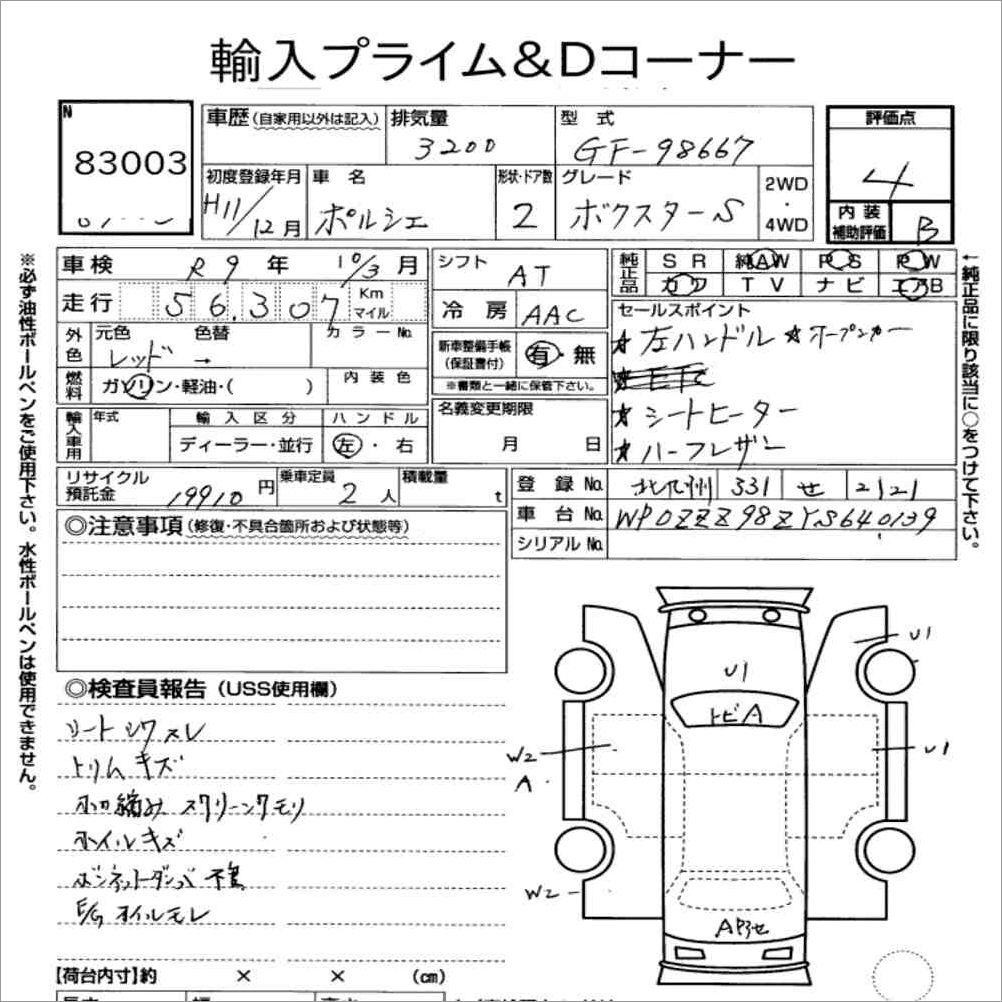 輸入プライム＆Dコーナー
N
83003
車歴（自家用以外は記入）
排気量
3200
型 式
GF-98667
評価点
4
初度登録年月
H11/12月
車 名
ポルシェ
形状・ドア数
2
グレード
ボクスターS
2WD
・
4WD
内 装
補助評価
B
車検
R 9 年 10/3 月
シフト
AT
純正品
SR 純AW PS PW
カワ TV ナビ エアB
走行
56,307
Km
マイル
冷 房
AAC
セールスポイント
★左ハンドル ★オープンカー
★シートヒーター
★ハーフレザー
外色
元色 色替
レッド →
カラーNo.
新車整備手帳
（保証書付）
有・無
※書類と一緒に保管下さい。
燃料
ガソリン・軽油・（ ）
内 装 色
名義変更期限
月 日
輸入車用
年式
輸 入 区 分
ディーラー・並行
ハ ン ド ル
左・右
リサイクル
預託金
19910 円
乗車定員
2 人
積載量
t
登 録 No.
北九州 331 せ 2121
車 台 No.
WP0ZZZ98ZYS640139
シリアル No.
◎注意事項（修復・不具合箇所および状態等）
◎検査員報告（USS使用欄）
シート シワ スレ
トリム キズ
ホロ縮み スクリーンクモリ
ホイルキズ
ボンネットダンパ 不良
E/G オイルモレ
U1
U1
トビA
W2
A
U1
W2
A色アセ
【荷台内寸】約 × × （cm）
※必ず油性ボールペンをご使用下さい。水性ボールペンは使用できません。
←純正品に限り該当に○をつけて下さい。